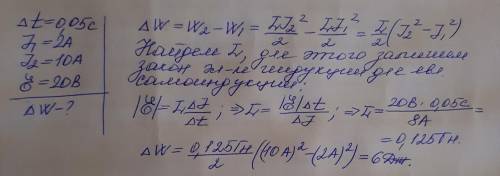 Δt = 0,05с
J₁ = 2А
J₂ = 10А
Ɛ = 20В
ΔW - ?
ΔW = W₂ - W₁ = L J₂²/2 - L J₁²/2 = L/2 (J₂² - J₁²)
Найдем L, для этого запишем
закон эл-м индукции для
самоиндукции:
|Ɛ| = L ΔJ/Δt; ⇒ L = |Ɛ|Δt/ΔJ; ⇒ L = 20В · 0,05с/8А =
= 0,125Гн.
ΔW = 0,125Гн/2 ((10А)² - (2А)²) = 6Дж.